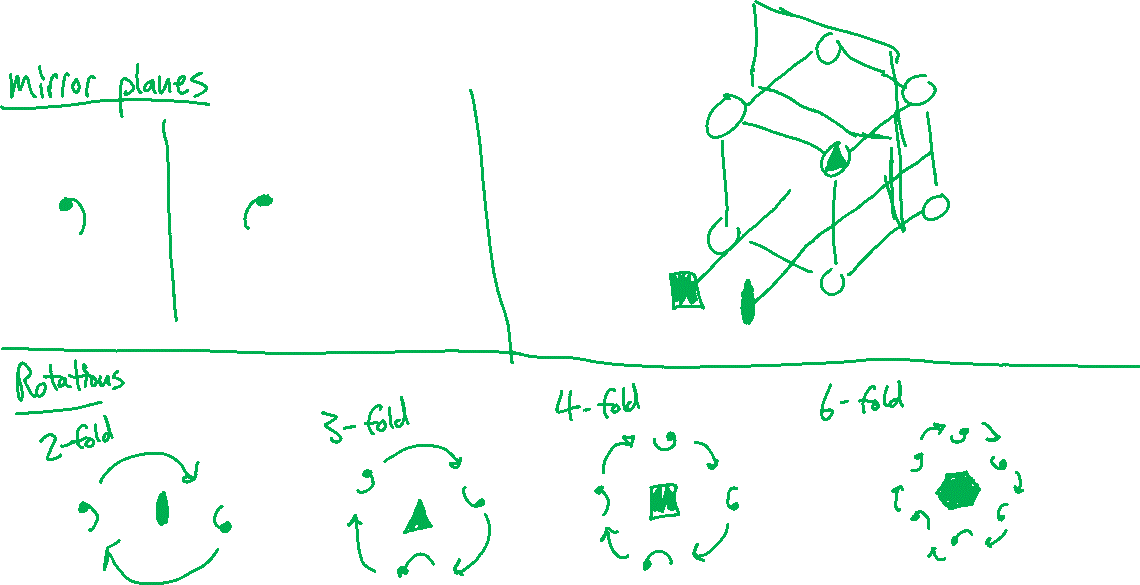 Mirror planes
Rotations
2-fold
3-fold
4-fold
6-fold